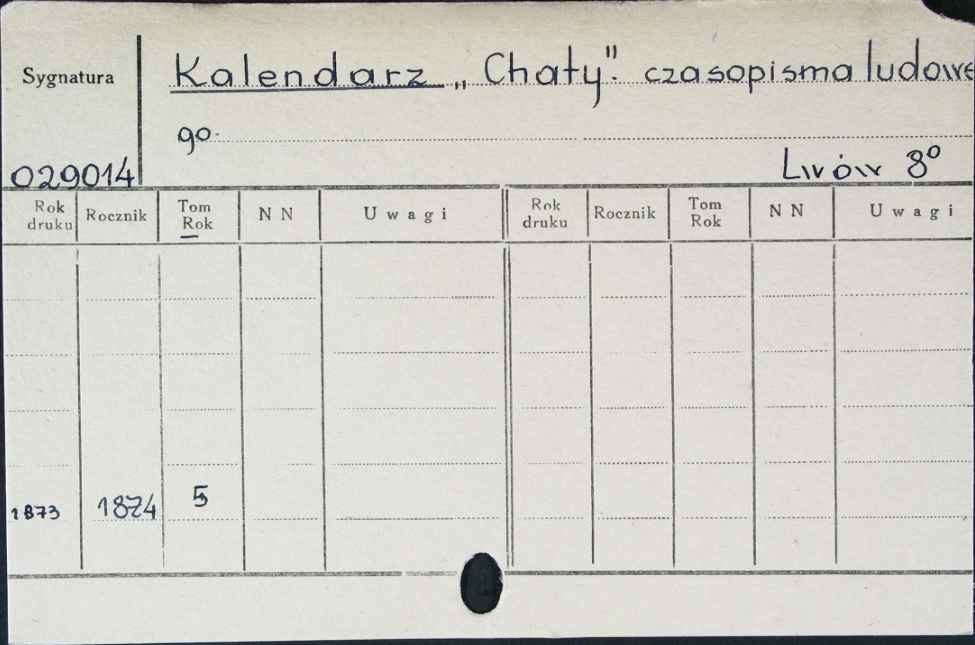 Sygnatura
Kalendarz „Chaty". czasopisma ludowe
go.
029014
Lwów 8º
Rok druku Rocznik Tom Rok N N Uwagi Rok druku Rocznik Tom Rok N N Uwagi
1873 1874 5